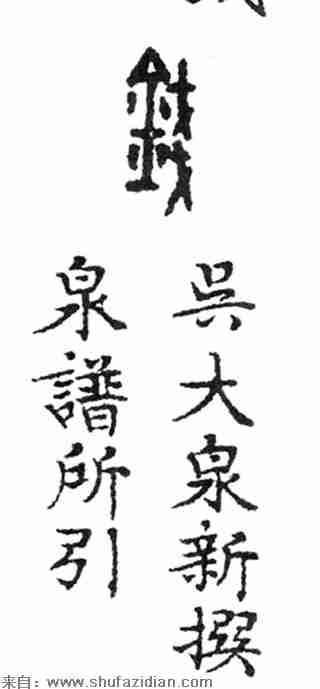 錢
吳大泉新撰
泉譜所引
来自：www.shufazidian.com